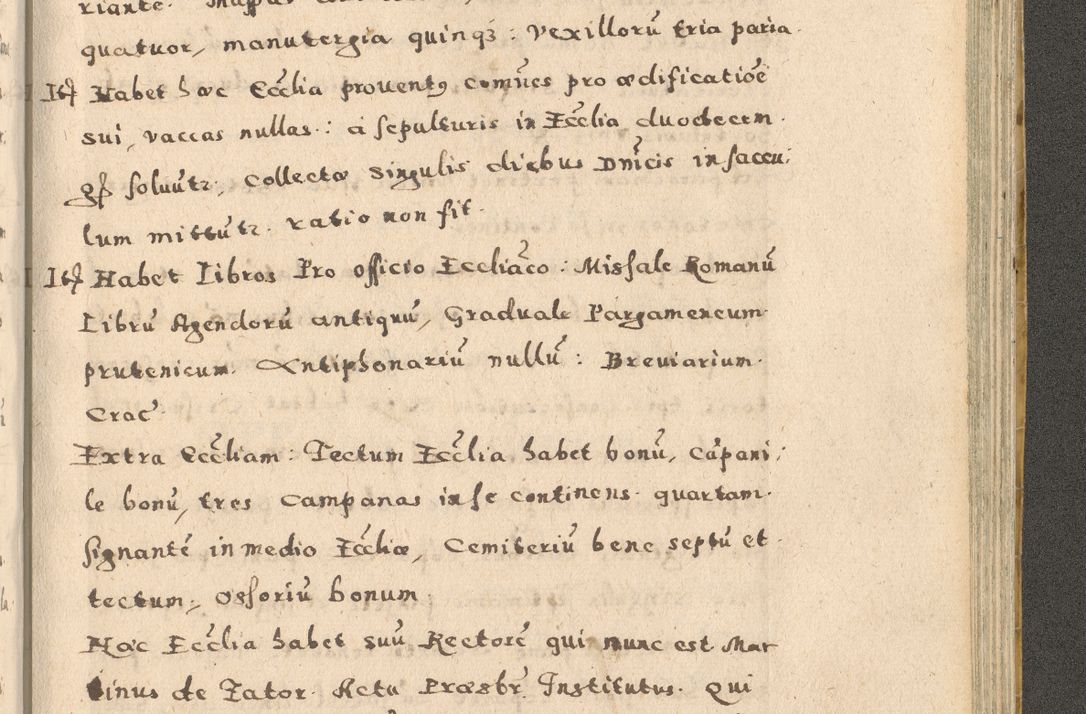 quatuor, manutergia quinq3: Vexillorũ tria paria.
Itẽ Habet hæc Eccłia prouentg comũes pro ædificatiõe
sui, vaccas nullas: à sepulturis in Eccłia duodecem
gr soluũtr, Collectæ singulis diebus Dnĩcis in saccu,
lum mittũtr. ratio non fit.
Itẽ Habet Libros Pro officio Eccliãco: Missale Romanũ
Librũ Agendorũ antiquũ, Graduale Pargameneum
prutenicum. Antiphonariũ nullũ: Breuiarium.
Crac:
Extra Eccliam: Tectum Ecclia habet bonũ, Cãpani,
le bonũ, tres Campanas in se continens. quartam.
signantẽ in medio Eccliæ, Cemiteriũ bene septũ et
tectum, Ossoriũ bonum.
Hæc Ecclia habet suũ Rectorẽ qui nunc est Mar
tinus de Zator. Actu Præsbr̃ Institutus. Qui